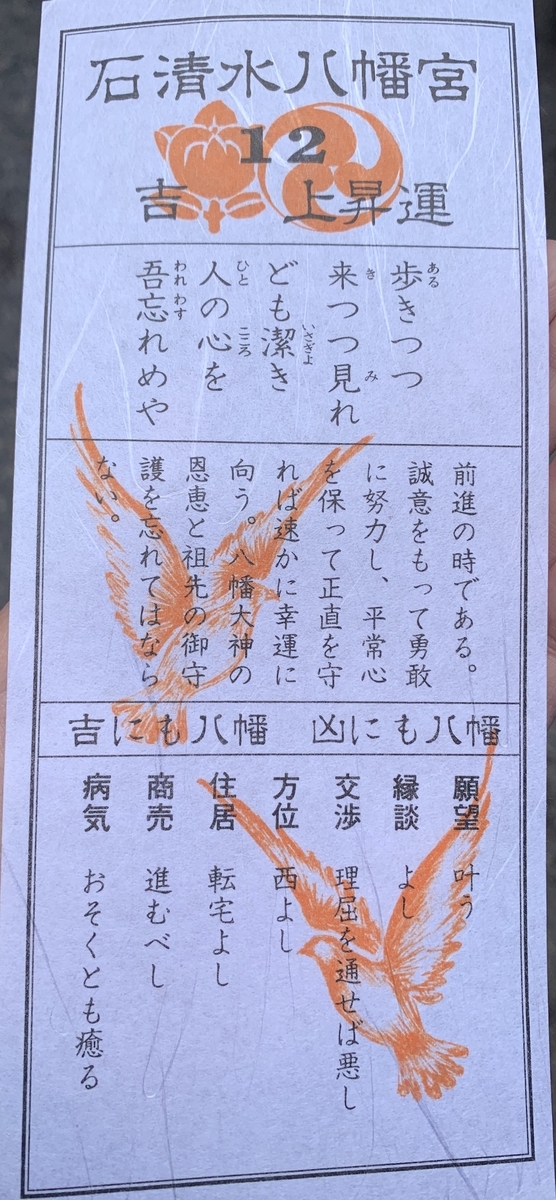 石清水八幡宮
12
吉 上昇運
歩きつつ
来つつ見れ
ども潔き
人の心を
吾忘れめや
ある
き み
いさぎよ
ひと こころ
われ わす
前進の時である。
誠意をもって勇敢
に努力し、平常心
を保って正直を守
れば速かに幸運に
向う。八幡大神の
恩恵と祖先の御守
護を忘れてはなら
ない。
吉にも八幡 凶にも八幡
願望 叶う
縁談 よし
交渉 理屈を通せば悪し
方位 西よし
住居 転宅よし
商売 進むべし
病気 おそくとも癒る